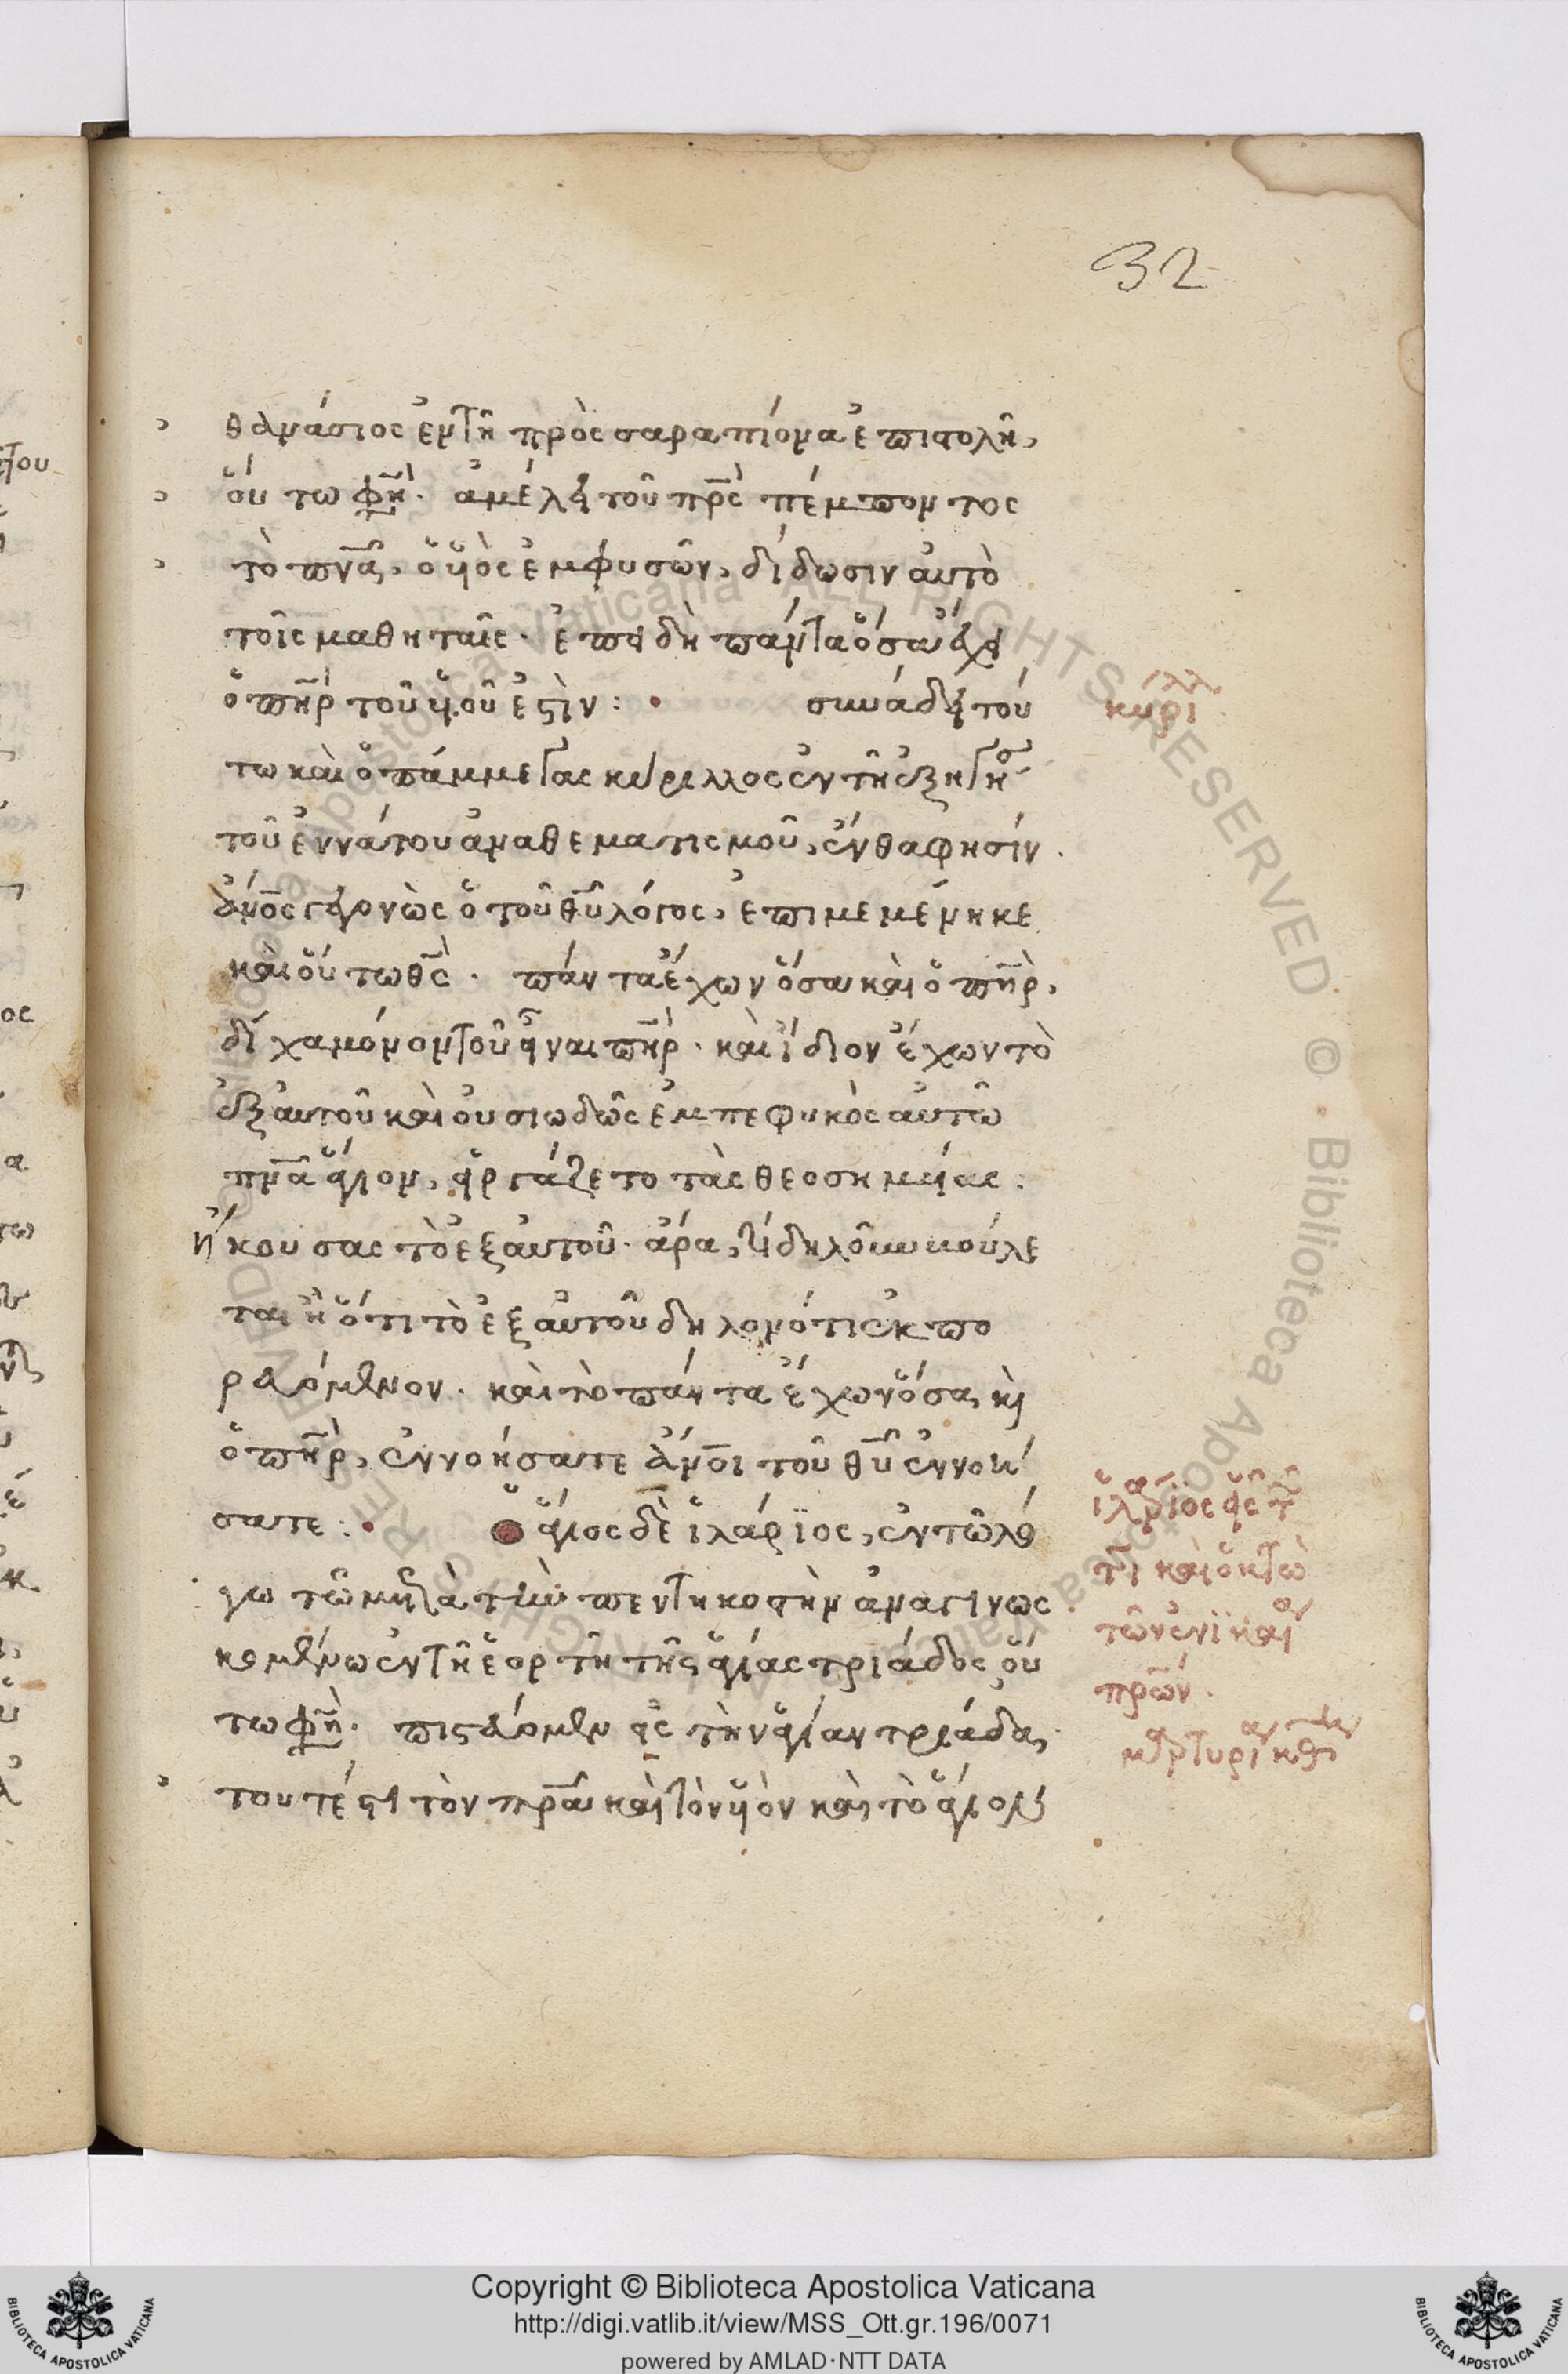 32
θανάσιος ἐν τῆ πρὸς σαραπίονα ἐπιστολῆ,
οὕτω φη̅. ἀμέλει τοῦ πρ̅ς πέμποντος
τὸ πνᾶ̅, ὁ υἱὸς ἐμφυσῶν, δίδωσιν αὐτὸ
τοῖς μαθηταῖς. ἐπειδὴ πάντα ὅσα ἔχει
ὁ πη̅ρ τοῦ υἱοῦ ἐστὶν: συνάδει τού
τω καὶ ὁ πάμμεγας κύριλλος ἐν τῆ ἐξηγή
τοῦ ἐννάτου ἀναθεματισμοῦ, ἔνθα φησίν.
ἄν̅ος γεγονὼς ὁ τοῦ θυ̅ λόγος, ἐπιμεμένηκε
καὶ οὕτω θ̅ς. πάντα ἔχων ὅσα καὶ ὁ πη̅ρ,
δίχα μόνον τοῦ εἶναι πη̅ρ. καὶ ἴδιον ἔχων τὸ
ἐξ αὐτοῦ καὶ οὐσιωδῶς ἐμπεφυκὸς αὐτῶ
πν̅α ἅγιον, εἰργάζετο τὰς θεοσημείας:
ἤκουσας τὸ ἐξ αὐτοῦ. ἄρα, τί δηλοῦν βούλε
ται ἢ ὅτι τὸ ἐξ αὐτοῦ δηλονότι ἐκπο
ρευόμενον. καὶ τὸ πάντα ἔχων ὅσα καὶ
ὁ πη̅ρ, ἐννοήσατε ἄν̅οι τοῦ θυ̅ ἐννοή
σατε: ὁ ἅγιος δὲ ἱλάριος, ἐν τῶ λό
γω τῶ μετὰ τὴν πεντηκοστὴν ἀναγινως
κομένω ἐν τῆ ἑορτῆ τῆς ἁγίας τριάδος οὕ
τω φη̅. πιστεύομεν εἰς τὴν ἁγίαν τριάδα,
τουτέστι τὸν πρ̅α καὶ τὸν υἱὸν καὶ τὸ ἅγιον
κύριλλ
ἱλάριος εἷς τ
τρι καὶ ὀκτὼ
τῶν ἐν νικαί
πρ̅ων.
Copyright © Biblioteca Apostolica Vaticana
http://digi.vatlib.it/view/MSS_Ott.gr.196/0071
powered by AMLAD·NTT DATA
BIBLIOTECA APOSTOLICA VATICANA
BIBLIOTECA APOSTOLICA VATICANA